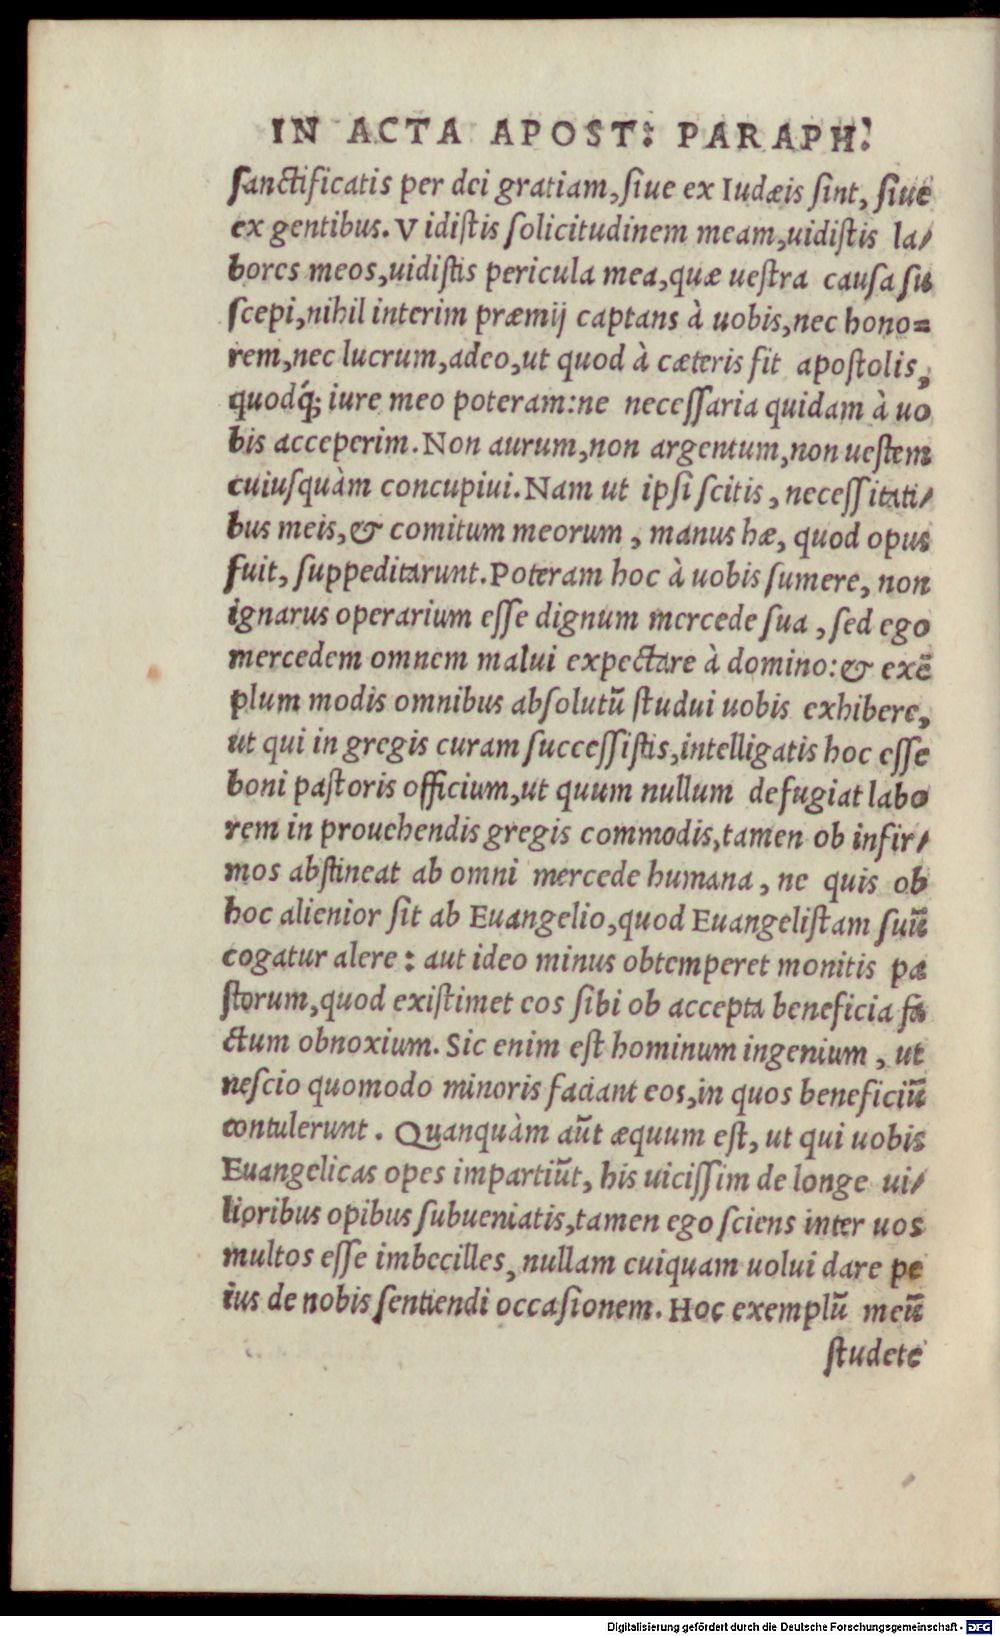 IN ACTA APOST: PARAPH:
sanctificatis per dei gratiam, siue ex Iudæis sint, siue
ex gentibus. Vidistis solicitudinem meam, uidistis la/
bores meos, uidistis pericula mea, quæ uestra causa su
scepi, nihil interim præmij captans à uobis, nec hono=
rem, nec lucrum, adeo, ut quod à cæteris fit apostolis,
quodq́; iure meo poteram: ne necessaria quidam à uo
bis acceperim. Non aurum, non argentum, non uestem
cuiusquàm concupiui. Nam ut ipsi scitis, necessitati/
bus meis, & comitum meorum, manus hæ, quod opus
fuit, suppeditarunt. Poteram hoc à uobis sumere, non
ignarus operarium esse dignum mercede sua, sed ego
mercedem omnem malui expectare à domino: & exē
plum modis omnibus absolutū studui uobis exhibere,
ut qui in gregis curam successistis, intelligatis hoc esse
boni pastoris officium, ut quum nullum defugiat labo
rem in prouehendis gregis commodis, tamen ob infir/
mos abstineat ab omni mercede humana, ne quis ob
hoc alienior sit ab Euangelio, quod Euangelistam suū
cogatur alere: aut ideo minus obtemperet monitis pa
storum, quod existimet eos sibi ob accepta beneficia fa
ctum obnoxium. Sic enim est hominum ingenium, ut
nescio quomodo minoris faciant eos, in quos beneficiū
contulerunt. Quanquàm aūt æquum est, ut qui uobis
Euangelicas opes impartiūt, his uicissim de longe ui/
lioribus opibus subueniatis, tamen ego sciens inter uos
multos esse imbecilles, nullam cuiquam uolui dare pe
ius de nobis sentiendi occasionem. Hoc exemplū meū
studete
Digitalisierung gefördert durch die Deutsche Forschungsgemeinschaft - DFG